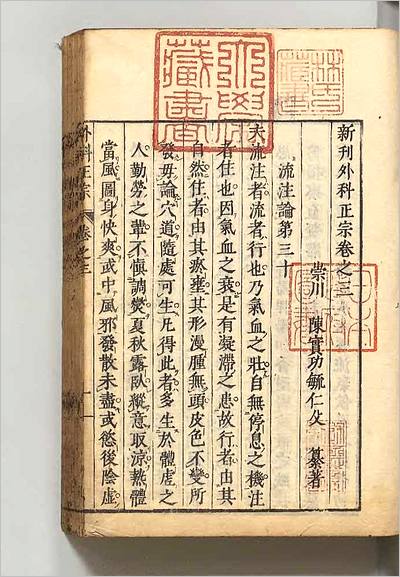 林氏藏書
新刊外科正宗卷之三
崇川 陳實功毓仁父 纂著
流注論第三十
夫流注者流者行也乃氣血之壯自無停息之機注
者住也因氣血之衰是有凝滯之患故行者由其
自然住者由其瘀壅其形漫腫無頭皮色不變所
發毋論穴道隨處可生凡得此者多生於體虛之
人勤勞之輩不慎調燮夏秋露臥縱意取涼熱體
當風圖身快爽或中風邪發散未盡或慾後陰虛
外科正宗 卷之三